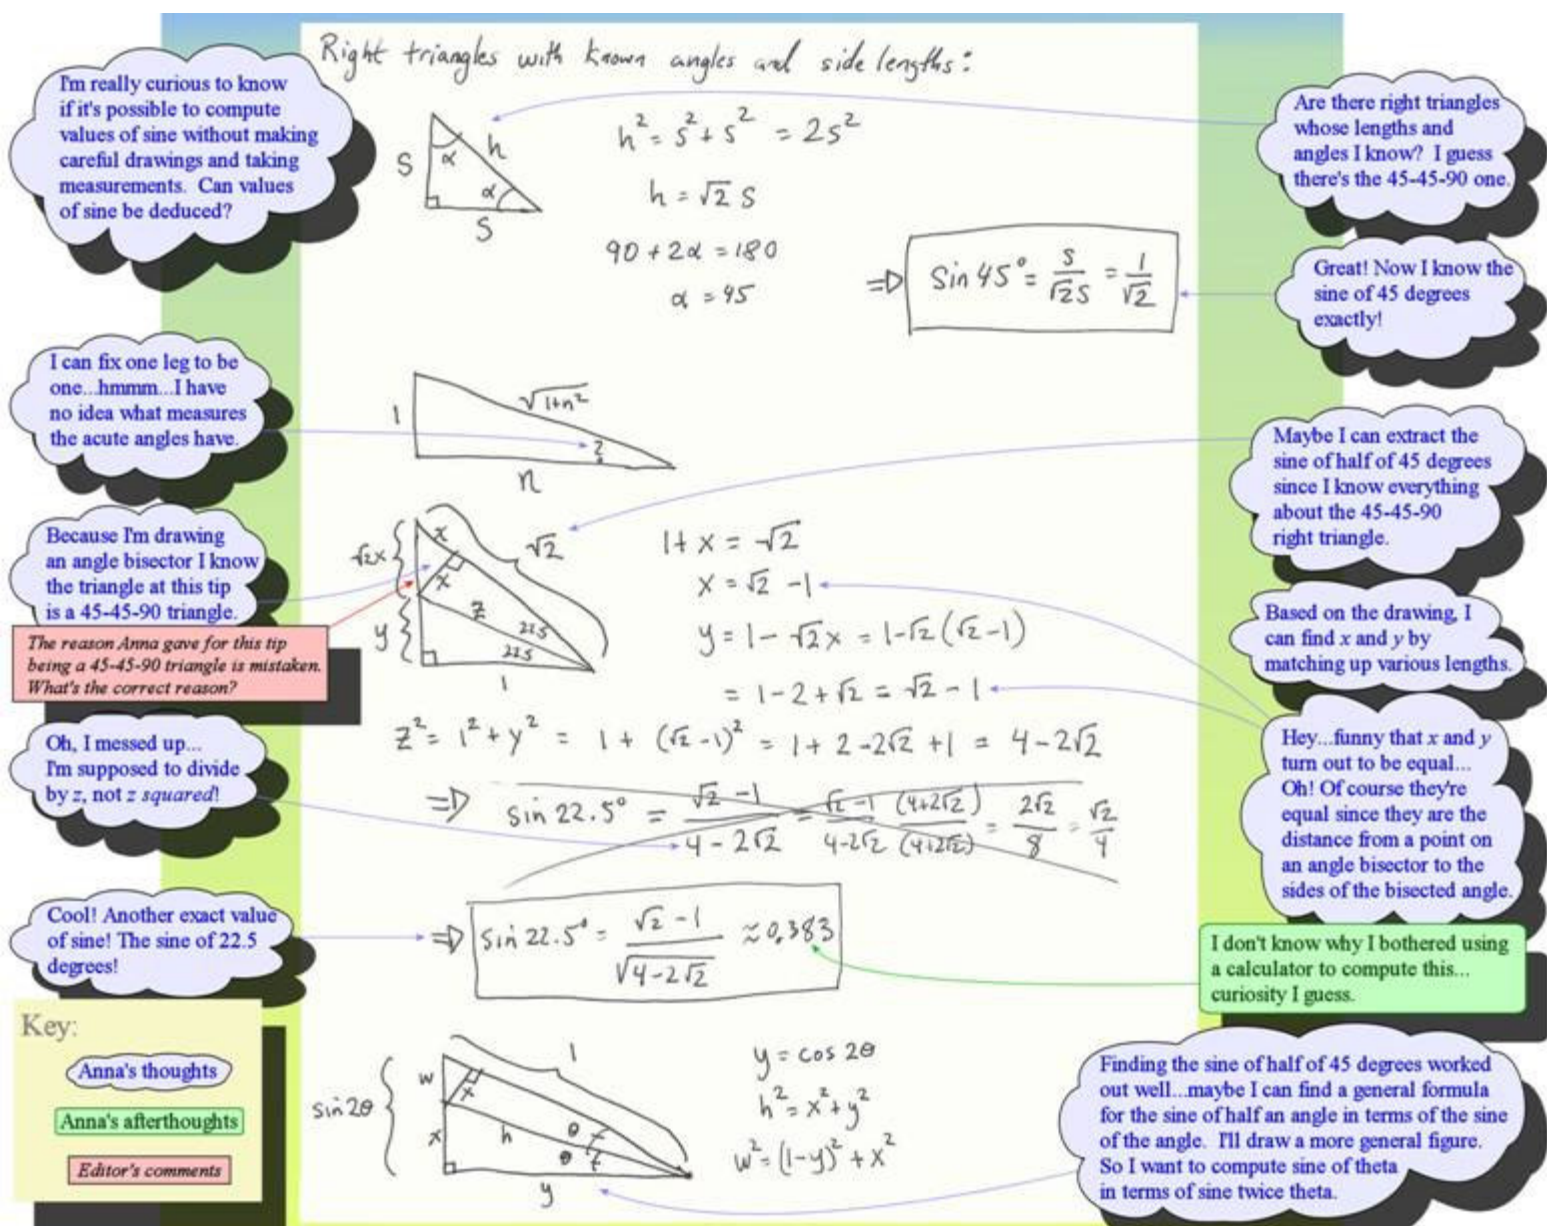 Right triangles with known angles and side lengths:
I'm really curious to know
if it's possible to compute
values of sine without making
careful drawings and taking
measurements. Can values
of sine be deduced?
S
α
h
α
S
h² = s² + s² = 2s²
h = √2 s
90 + 2α = 180
α = 45
⇒ Sin 45° = s/√2s = 1/√2
Are there right triangles
whose lengths and
angles I know? I guess
there's the 45-45-90 one.
Great! Now I know the
sine of 45 degrees
exactly!
I can fix one leg to be
one...hmmm...I have
no idea what measures
the acute angles have.
1
√1+n²
?
n
Maybe I can extract the
sine of half of 45 degrees
since I know everything
about the 45-45-90
right triangle.
Because I'm drawing
an angle bisector I know
the triangle at this tip
is a 45-45-90 triangle.
The reason Anna gave for this tip
being a 45-45-90 triangle is mistaken.
What's the correct reason?
√2x
x
√2
x
z
22.5
y
22.5
1
1 + x = √2
x = √2 - 1
y = 1 - √2x = 1-√2(√2-1)
= 1 - 2 + √2 = √2 - 1
Based on the drawing, I
can find x and y by
matching up various lengths.
Hey...funny that x and y
turn out to be equal...
Oh! Of course they're
equal since they are the
distance from a point on
an angle bisector to the
sides of the bisected angle.
z² = 1² + y² = 1 + (√2 - 1)² = 1 + 2 - 2√2 + 1 = 4 - 2√2
Oh, I messed up...
I'm supposed to divide
by z, not z squared!
⇒ sin 22.5° = √2 - 1/4 - 2√2 = √2 - 1/4-2√2 (4+2√2)/(4+2√2) = 2√2/8 = √2/4
Cool! Another exact value
of sine! The sine of 22.5
degrees!
⇒ sin 22.5° = √2 - 1/√4-2√2 ≈ 0.383
I don't know why I bothered using
a calculator to compute this...
curiosity I guess.
Key:
Anna's thoughts
Anna's afterthoughts
Editor's comments
sin 2θ
w
x
1
x
h
θ
θ
y
y = cos 2θ
h² = x² + y²
w² = (1-y)² + x²
Finding the sine of half of 45 degrees worked
out well...maybe I can find a general formula
for the sine of half an angle in terms of the sine
of the angle. I'll draw a more general figure.
So I want to compute sine of theta
in terms of sine twice theta.